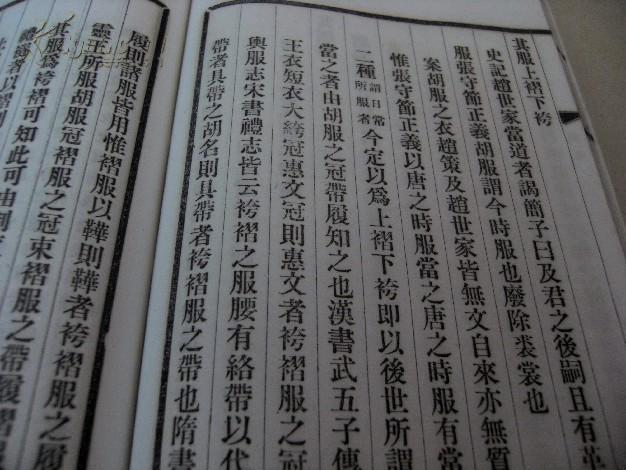 其服上褶下袴
史記趙世家當道者謁簡子曰及君之後嗣且有革
服張守節正義胡服謂今時服也廢除裘裳也
案胡服之衣趙策及趙世家皆無文自來亦無質
惟張守節正義以唐之時服當之唐之時服有常
二種謂日常所服者今定以爲上褶下袴即以後世所謂
當之者由胡服之冠帶履知之也漢書武五子傳
王衣短衣大絝冠惠文冠則惠文者袴褶服之
輿服志宋書禮志皆云袴褶之服腰有絡帶以代
帶者具帶之胡名則具帶者袴褶服之帶也隋書
履則諸服皆用惟褶服以鞾則鞾者袴褶服之履
靈王所服胡服冠褶服之冠束褶服之帶履褶
其服爲袴褶可知此可由制